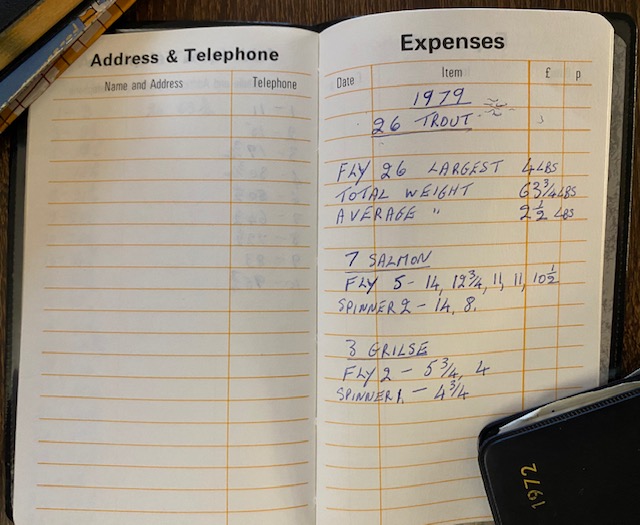 Address & Telephone
Name and Address Telephone
Expenses
Date Item £ p
1979
26 TROUT
FLY 26 LARGEST 4 LBS
TOTAL WEIGHT 63 3/4 LBS
AVERAGE " 2 1/2 LBS
7 SALMON
FLY 5 - 14, 12 3/4, 11, 11, 10 1/2
SPINNER 2 - 14, 8.
3 GRILSE
FLY 2 - 5 3/4, 4
SPINNER 1. - 4 3/4
1972